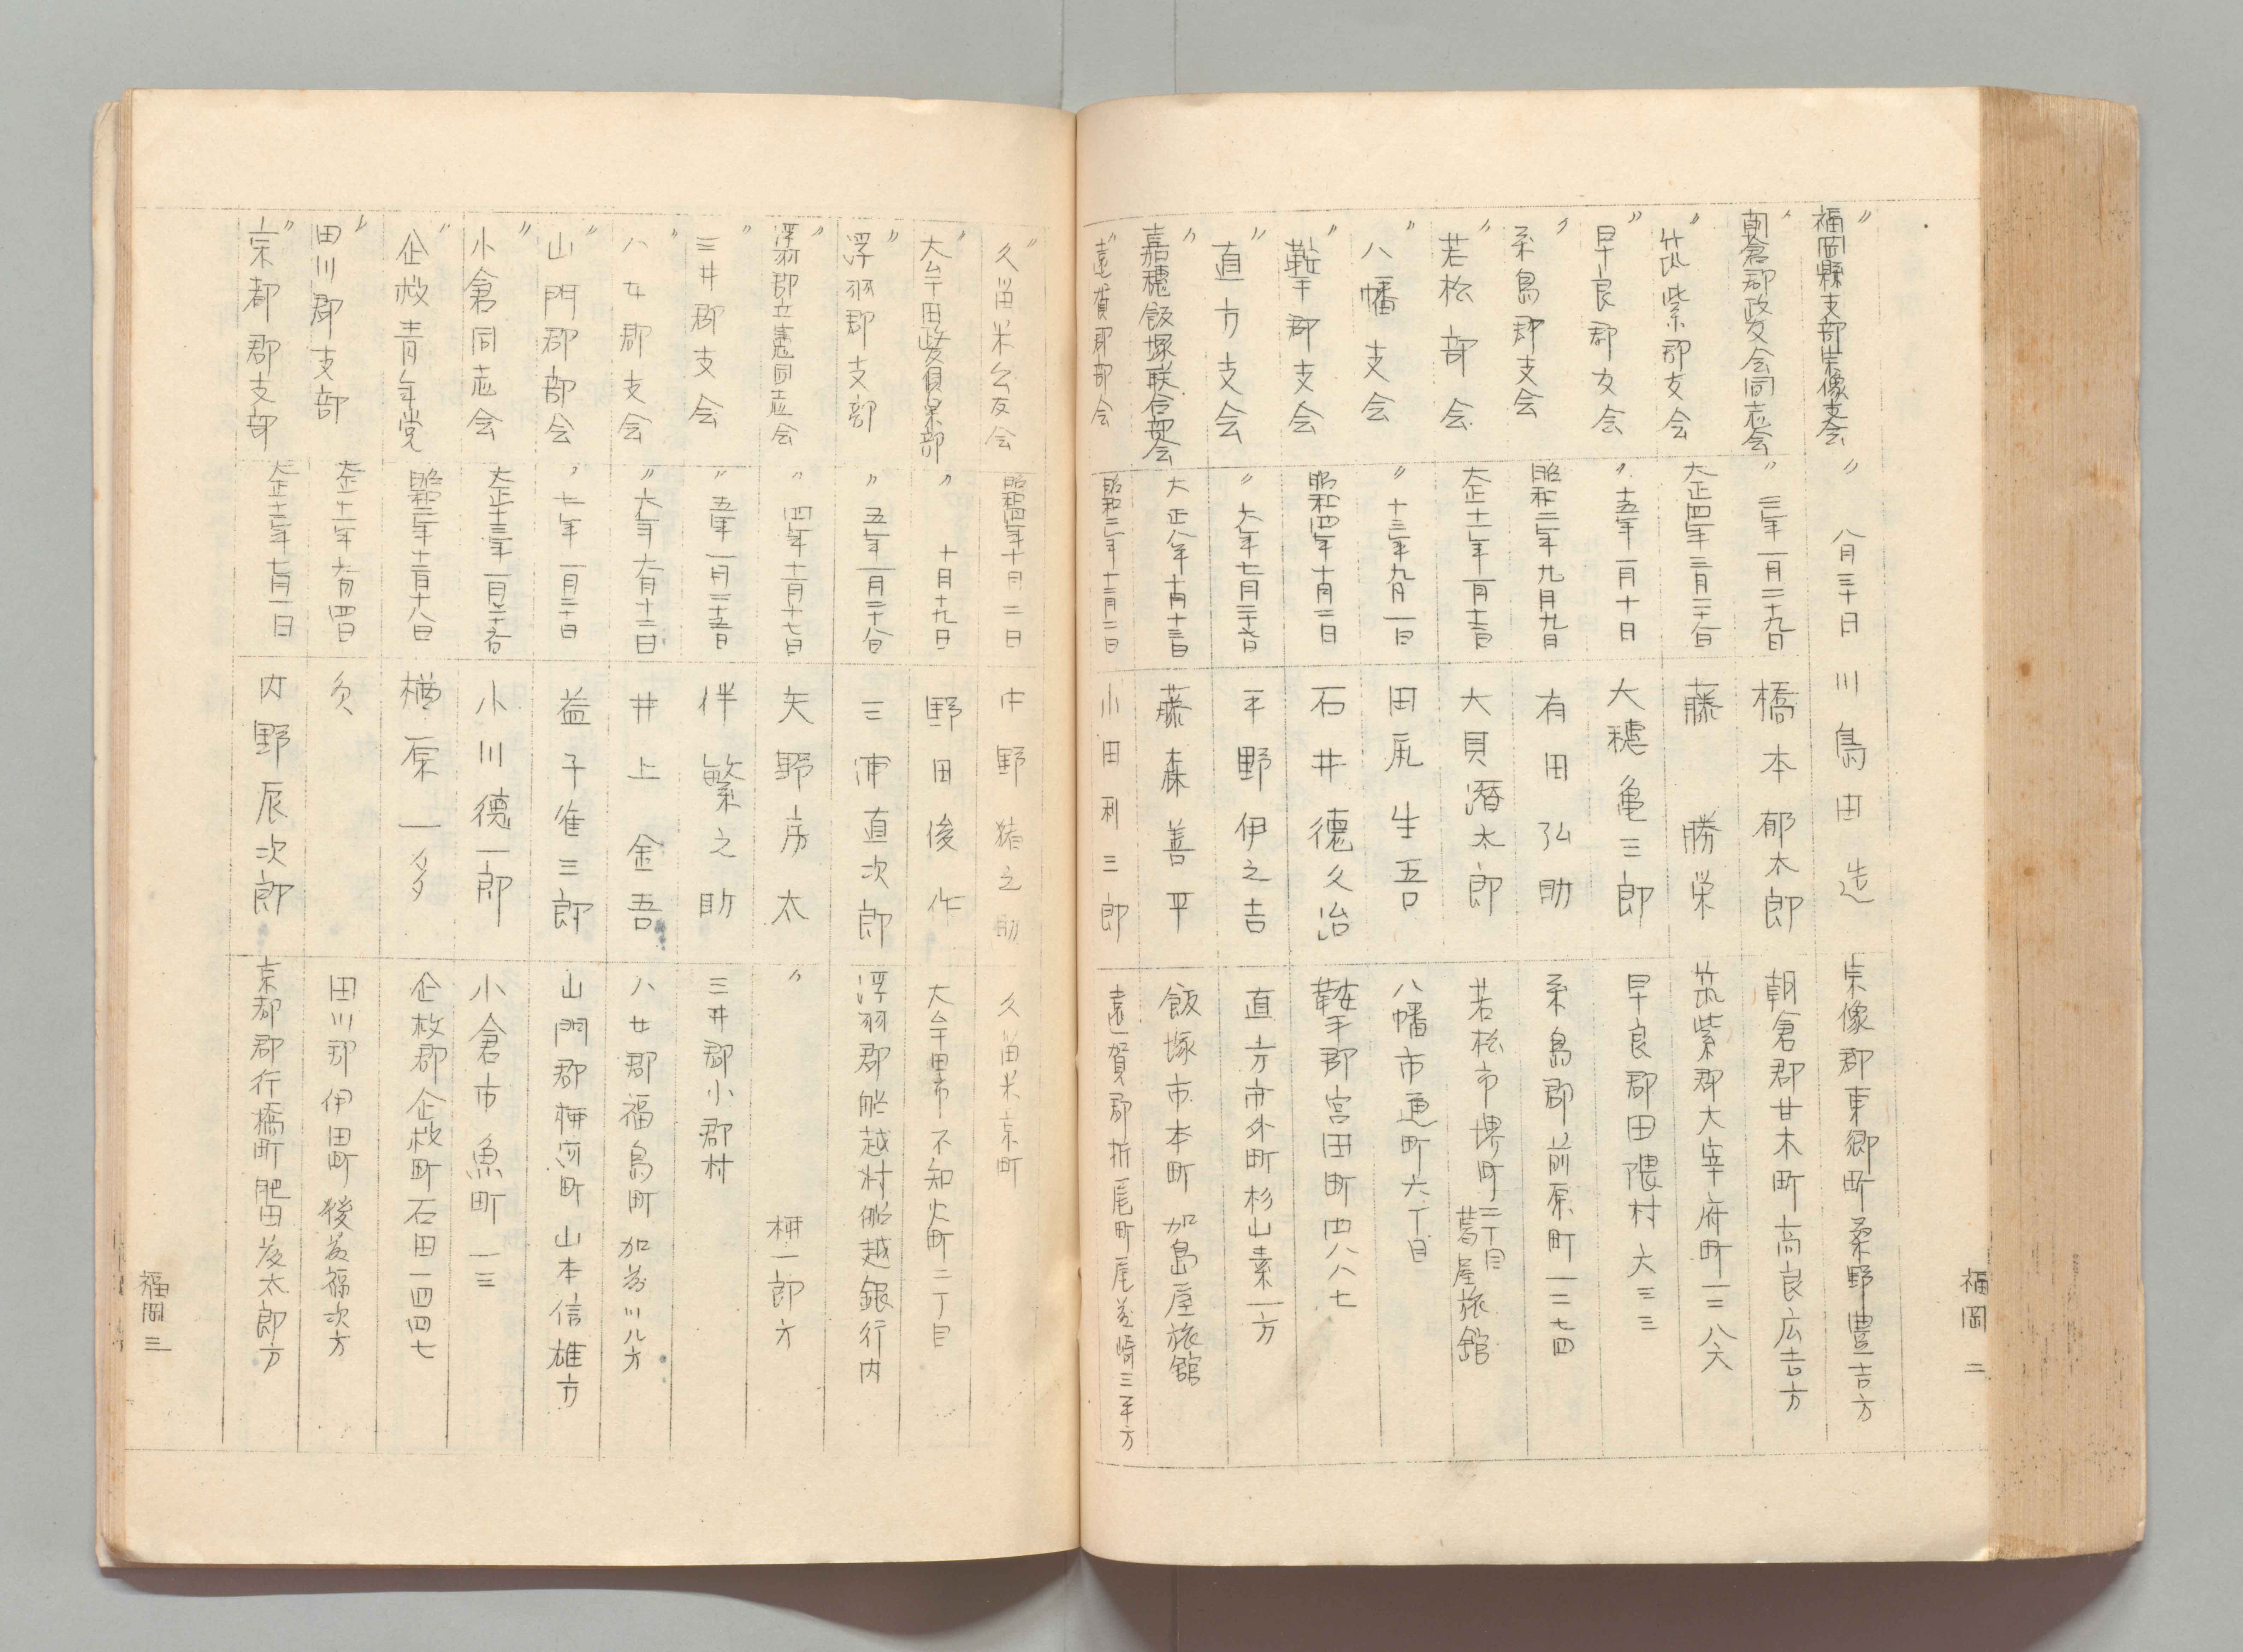 〃福岡縣支部宗像支会 〃 八月三十日 川島田造 宗像郡東郷町柔野豊吉方
〃朝倉郡政友会同志会 〃三年一月二十九日 橋本郁太郎 朝倉郡甘木町高良広吉方
〃筑紫郡支会 大正四年三月二十 日 藤勝栄 筑紫郡大宰府町一三八六
〃早良郡友会 〃十五年一月十日 大穂亀三郎 早良郡田隈村六三三
〃糸島郡支会 昭和二年九月九日 有田弘助 糸島郡前原町一二七四
〃若松部会 大正十一年一月十 日 大貝潜太郎 若松市堺町二丁目葛屋旅館
〃八幡支会 〃十三年九月一日 田尻生吾 八幡市通町六丁目
〃鞍手郡支会 昭和四年十月二日 石井徳久治 鞍手郡宮田町四八八七
〃直方支会 〃六年七月二十 日 平野伊之吉 直方市外町杉山素一方
〃嘉穂飯塚联合部会 大正八年十月十三日 藤森善平 飯塚市本町加島屋旅館
〃遠賀郡部会 昭和二年十二月一日 小田利三郎 遠賀郡折尾町尾 崎三平方
福岡 二
〃久留米公友会 昭和四年十月二日 中野猪之助 久留米京町
〃大牟田政友倶楽部 〃 十月十九日 野田俊作 大牟田市不知火町二丁目
〃浮羽郡支部 〃五年一月二十 日 三浦直次郎 浮羽郡船越村船越銀行内
〃浮羽郡立憲同志会 〃四年十二月十七日 矢野房太 〃 柳一郎方
〃三井郡支会 〃五年一月二十五日 伴繁之助 三井郡小郡村
〃八女郡支会 〃六年六月十二日 井上金吾 八女郡福島町加 川 方
〃山門郡部会 〃七年一月二十日 益子隹三郎 山門郡柳河町山本信雄方
〃小倉同志会 大正十三年一月二十 日 小川徳一郎 小倉市魚町一三
〃企救青年党 昭和二年十二月十八日 楢原一多 企救郡企救町石田一四四七
〃田川郡支部 大正十一年六月四日 欠 田川郡伊田町後 福次方
〃京都郡支部 大正十二年七月一日 内野辰次郎 京都郡行橋町肥田 太郎方
福岡 三